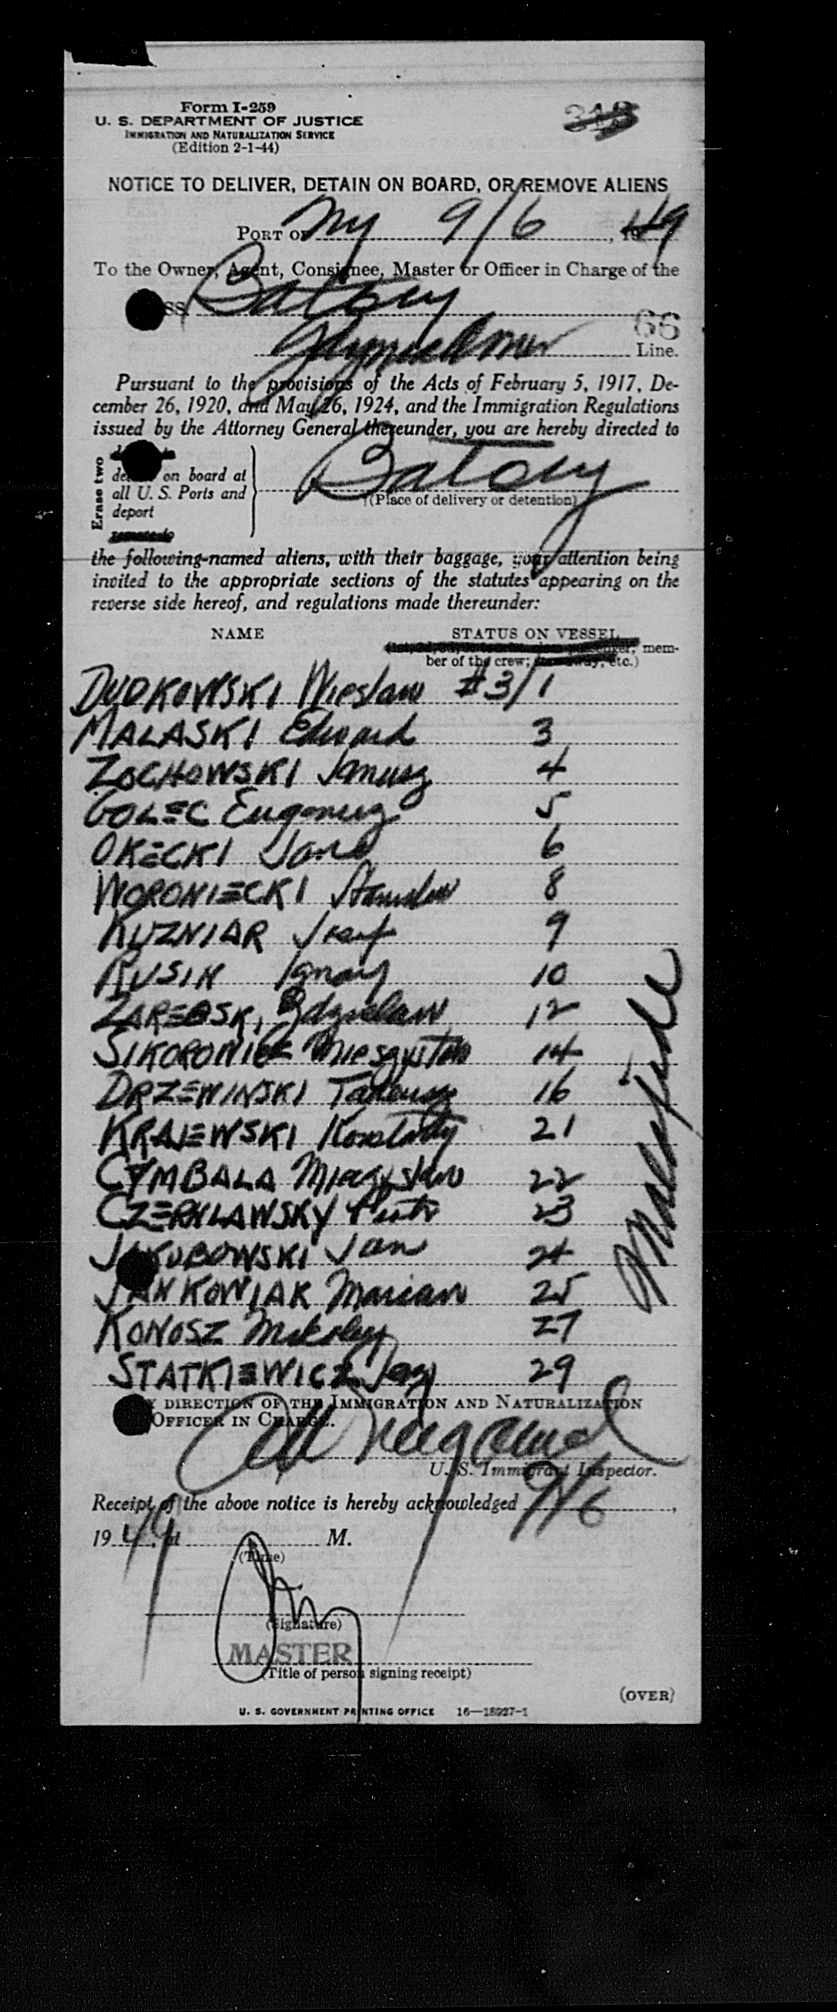 Form I-259
U. S. DEPARTMENT OF JUSTICE
IMMIGRATION AND NATURALIZATION SERVICE
(Edition 2-1-44)
NOTICE TO DELIVER, DETAIN ON BOARD, OR REMOVE ALIENS
PORT OF NY 9/6, 1949
To the Owner, Agent, Consignee, Master or Officer in Charge of the
SS. Batory
66
Line.
Pursuant to the provisions of the Acts of February 5, 1917, De-
cember 26, 1920, and May 26, 1924, and the Immigration Regulations
issued by the Attorney General thereunder, you are hereby directed to
Erase two
on board at
all U. S. Ports and
deport
Batory
(Place of delivery or detention)
the following-named aliens, with their baggage, your attention being
invited to the appropriate sections of the statutes appearing on the
reverse side hereof, and regulations made thereunder:
NAME STATUS ON VESSEL
mem-
ber of the crew; etc.)
DUDKOWSKI Wieslaw #3/1
MALASKI Edward 3
ZOCHOWSKI Janusz 4
GOLEC Eugeniusz 5
OKECKI Jan 6
WORONIECKI Stanislaw 8
KUZNIAR Josef 9
RUSIN Ignacy 10
ZAREBSKI Zdzislaw 12
14
DRZEWINSKI Tadeusz 16
KRAJEWSKI Konstanty 21
CYMBALA Mieczyslaw 22
Piotr 23
JAKUBOWSKI Jan 24
JANKOWIAK Marian 25
KONOSZ Mikolaj 27
STATKIEWICZ Jerzy 29
Malafide
BY DIRECTION OF THE IMMIGRATION AND NATURALIZATION
OFFICER IN CHARGE.
U. S. Immigrant Inspector.
Receipt of the above notice is hereby acknowledged 9/6,
1949, at M.
(Time)
(Signature)
MASTER
(Title of person signing receipt)
(OVER)
U. S. GOVERNMENT PRINTING OFFICE 16—18927-1